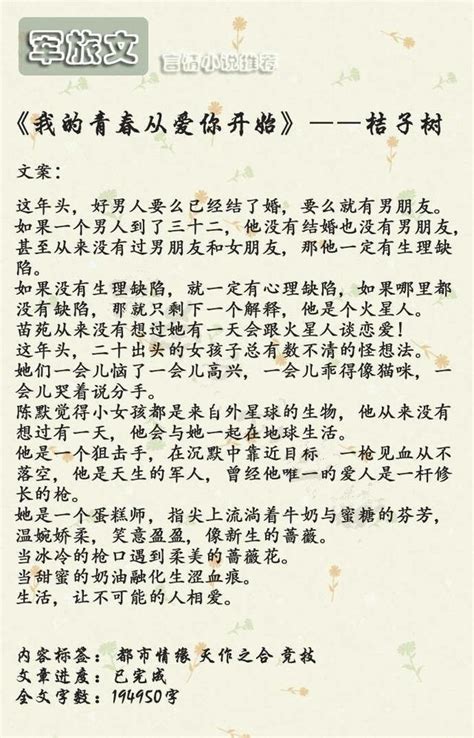 军旅文
言情小说推荐
《我的青春从爱你开始》——桔子树
文案：
这年头，好男人要么已经结了婚，要么就有男朋友。
如果一个男人到了三十二，他没有结婚也没有男朋友，
甚至从来没有过男朋友和女朋友，那他一定有生理缺
陷。
如果没有生理缺陷，就一定有心理缺陷，如果哪里都
没有缺陷，那就只剩下一个解释，他是个火星人。
苗苑从来没有想过她有一天会跟火星人谈恋爱！
这年头，二十出头的女孩子总有数不清的怪想法。
她们一会儿恼了一会儿高兴，一会儿乖得像猫咪，一
会儿哭着说分手。
陈默觉得小女孩都是来自外星球的生物，他从来没有
想过有一天，他会与她一起在地球生活。
他是一个狙击手，在沉默中靠近目标，一枪见血从不
落空，他是天生的军人，曾经他唯一的爱人是一杆修
长的枪。
她是一个蛋糕师，指尖上流淌着牛奶与蜜糖的芬芳，
温婉娇柔，笑意盈盈，像新生的蔷薇。
当冰冷的枪口遇到柔美的蔷薇花。
当甜蜜的奶油融化生涩血痕。
生活，让不可能的人相爱。
内容标签：都市情缘 天作之合 竞技
文章进度：已完成
全文字数：194950字